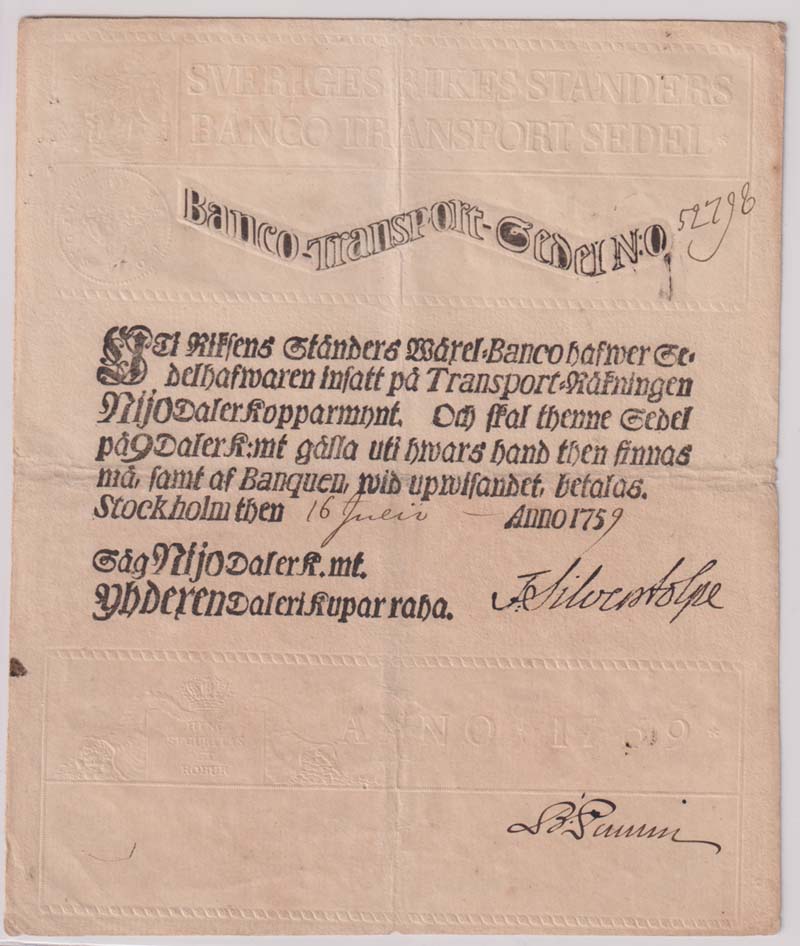 SVERIGES RIKES STANDERS
BANCO TRANSPORT SEDEL *
Banco-Transport-Sedel N:O 52798
UTi Riksens Ständers Wäxel-Banco hafwer Se-
delhafwaren insatt på Transport-Räkningen
Nijo Daler Kopparmynt. Och skal thenne Sedel
på 9 Daler K:mt gälla uti hwars hand then finnas
må, samt af Banquen, wid upwisandet, betalas.
Stockholm then 16 Junii — Anno 1759
Säg Nijo Daler K.mt.
Yhdexen Daleri Kupar raha.
F. Silverstolpe
ANNO * 1759 *
ROBUR